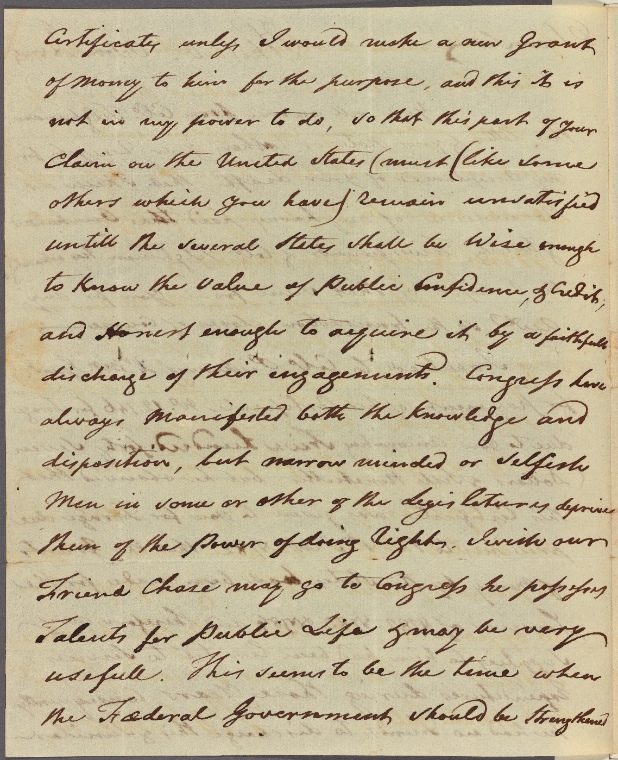 Certificates unless I would make a new Grant
of Money to him for the purpose, and this it is
not in my power to do, so that this part of your
Claim on the United States (must (like some
others which you have) remain unsatisfied
untill the several States shall be Wise enough
to Know the Value of Public Confidence, & Credit,
and Honest enough to acquire it by a faithfull
discharge of their engagements. Congress have
always Manifested both the Knowledge and
disposition, but narrow minded or selfish
Men in some or other of the Legislatures deprive
them of the Power of doing Right. I wish our
Friend Chase may go to Congress he possesses
Talents for Public Life & may be very
usefull. This seems to be the time when
the Fæderal Government should be Strengthened